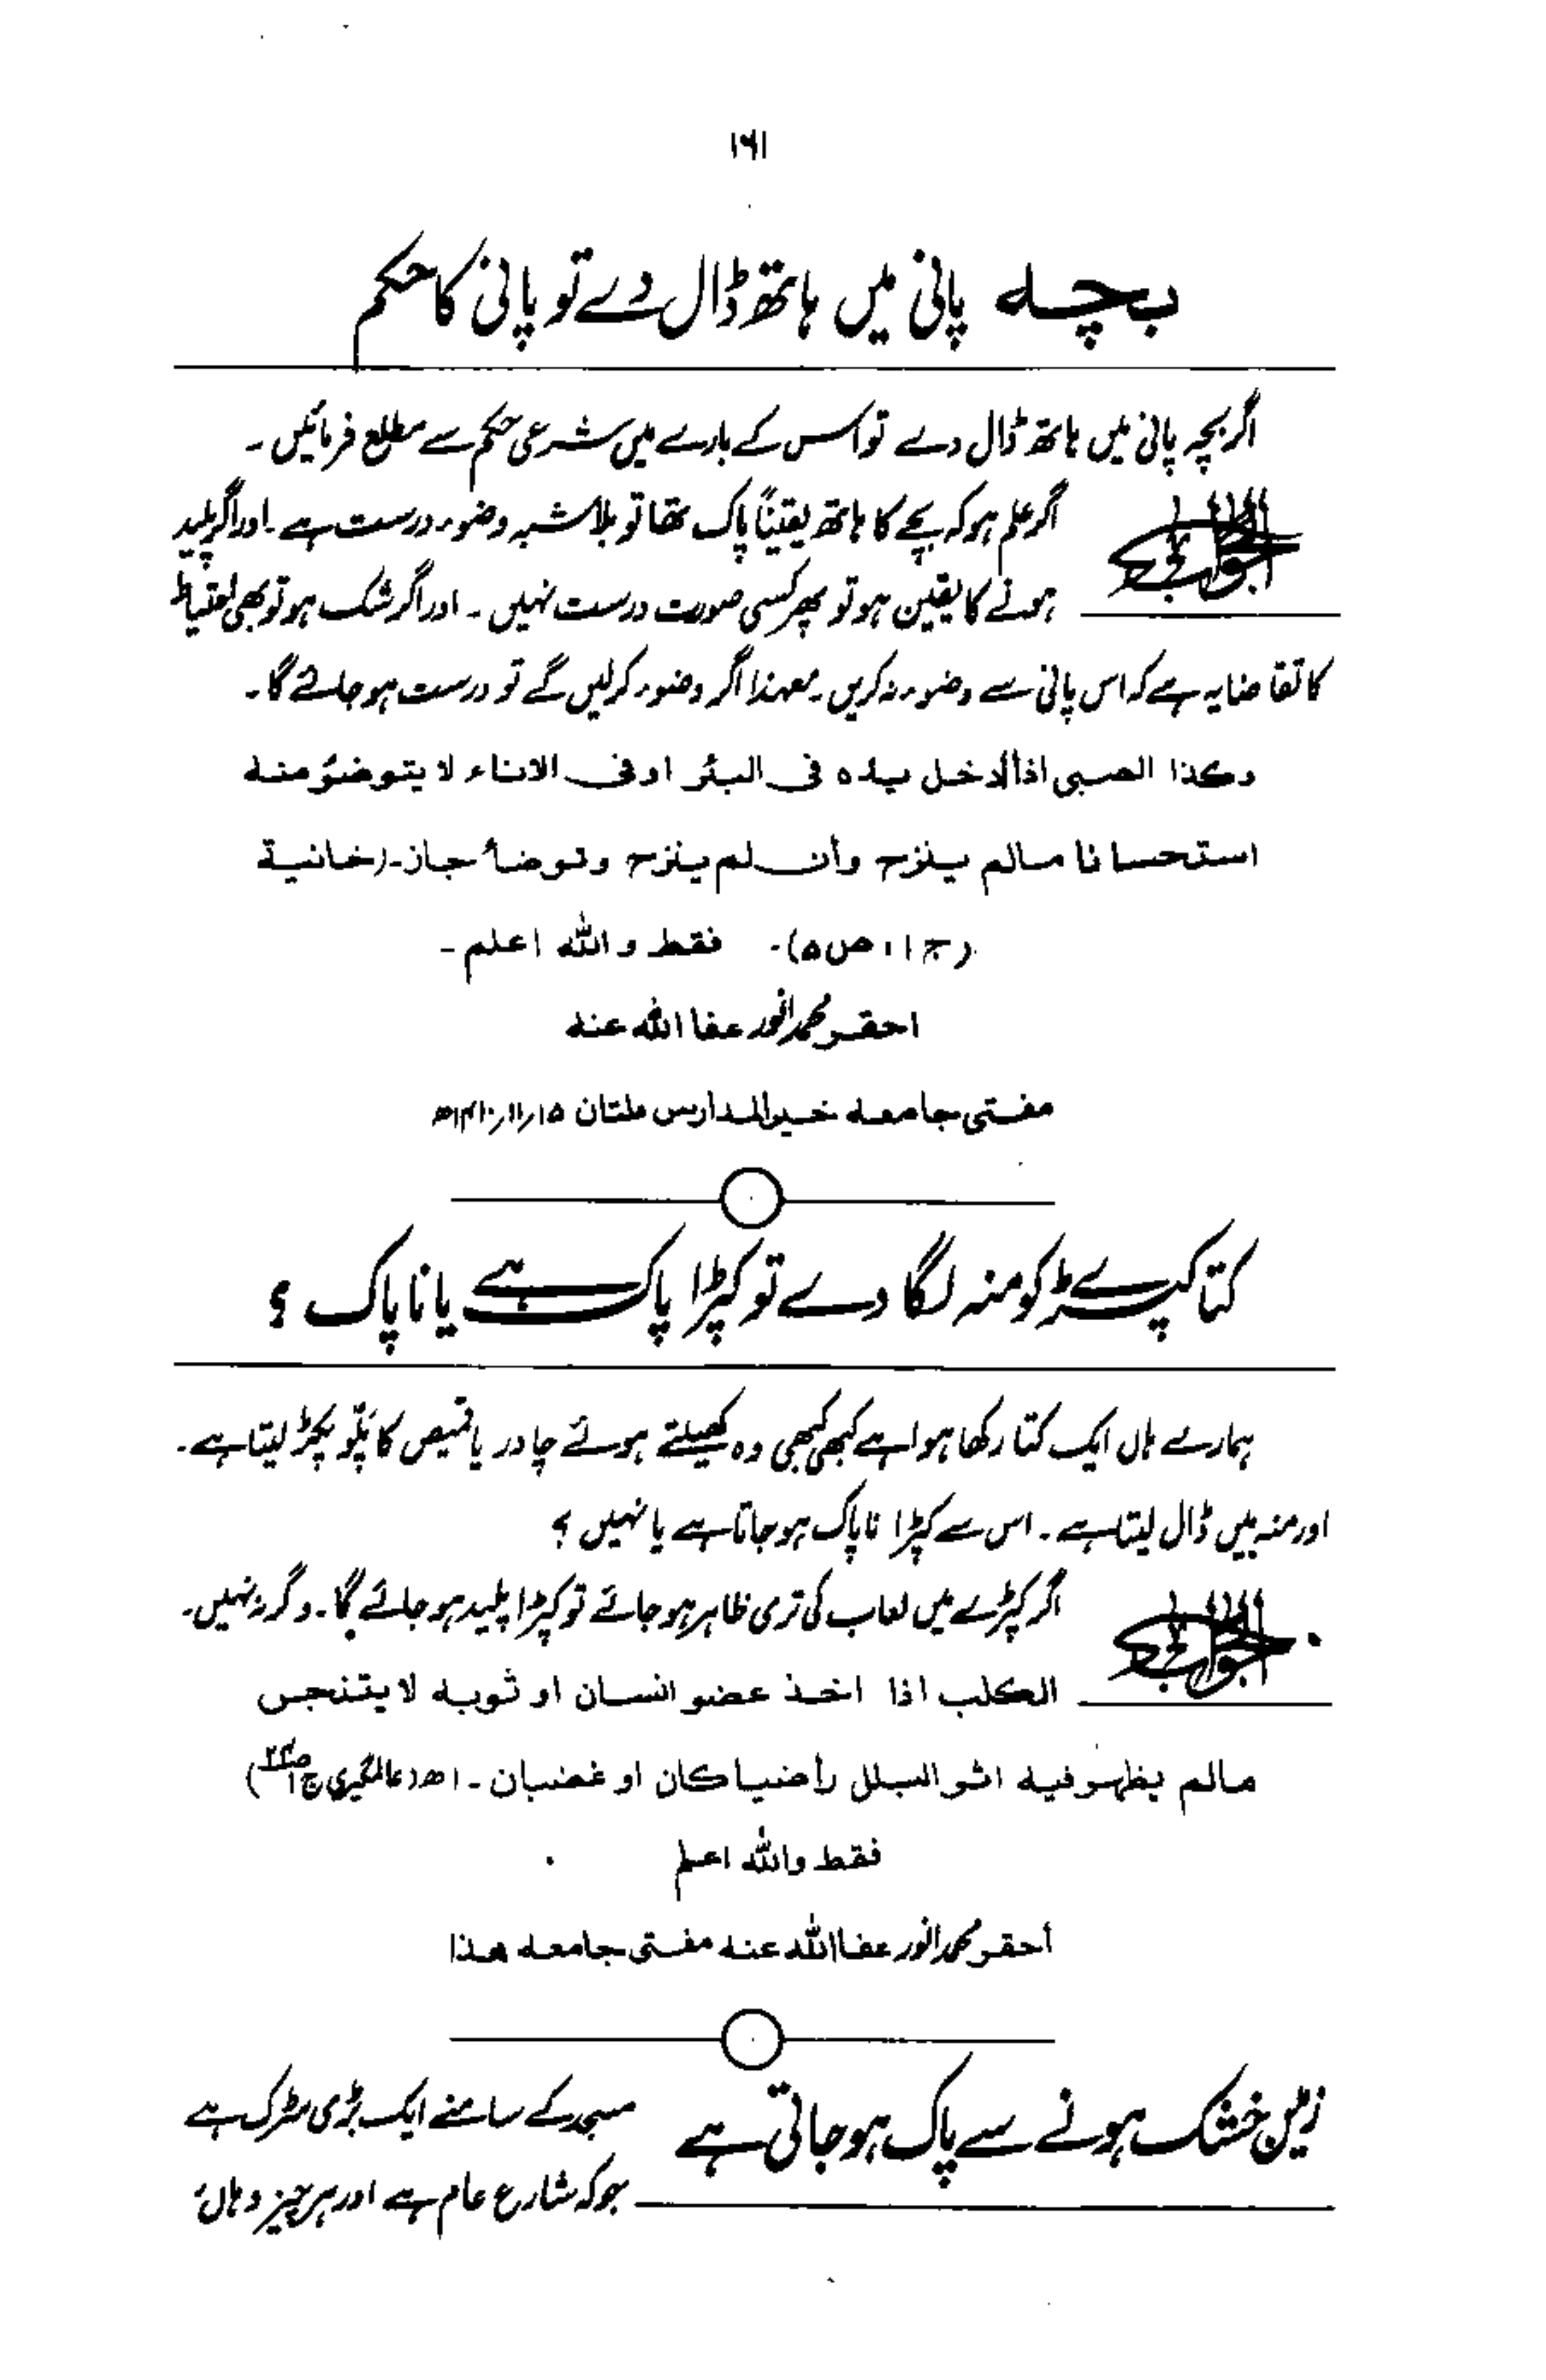 ۱۶۱
بچہ پانی میں ہاتھ ڈال دے تو پانی کا حکم
اگر بچہ پانی میں ہاتھ ڈال دے تو اس کے بارے میں شرعی حکم سے مطلع فرمائیں۔
الجواب
اگر علم ہو کہ بچے کا ہاتھ یقیناً پاک تھا تو بلاشبہ وضوء درست ہے۔ اور اگر پلید
ہونے کا یقین ہو تو پھر کسی صورت درست نہیں۔ اور اگر شک ہو تو بھی احتیاط
کا تقاضا یہ ہے کہ اس پانی سے وضوء نہ کریں۔ معہذا اگر وضوء کر لیں گے تو درست ہو جائے گا۔
وكذا الصبى اذا ادخل يده فى البئر او فى الاناء لا يتوضؤ منه
استحسانا مالم ينزح وأن لم ينزح وتوضأ جاز۔ (خانية
(ج ۱، ص ۵)۔ فقط والله اعلم۔
احقر محمد انور عفا الله عنه
مفتى جامعه خير المدارس ملتان ۱۵/۱۱/۱۴۱۰ھ
کتا کپڑے کو منہ لگا دے تو کپڑا پاک ہے یا ناپاک ؟
ہمارے ہاں ایک کتا رکھا ہوا ہے کبھی کبھی وہ کھیلتے ہوئے چادر یا قمیص کا پلّو پکڑ لیتا ہے۔
اور منہ میں ڈال لیتا ہے۔ اس سے کپڑا ناپاک ہو جاتا ہے یا نہیں ؟
الجواب
اگر کپڑے میں لعاب کی تری ظاہر ہو جائے تو کپڑا پلید ہو جائے گا۔ وگرنہ نہیں۔
الكلب اذا اخذ عضو انسان او ثوبه لا يتنجس
مالم يظهر فيه اثر البلل راضيا كان او غضبان۔ اھ (عالمگیری ج۱
فقط والله اعلم
أحقر محمد انور عفا الله عنه مفتى جامعه هذا
زمین خشک ہونے سے پاک ہو جاتی ہے
مسجد کے سامنے ایک بڑی سڑک ہے
جو کہ شارع عام ہے اور ہر چیز وہاں